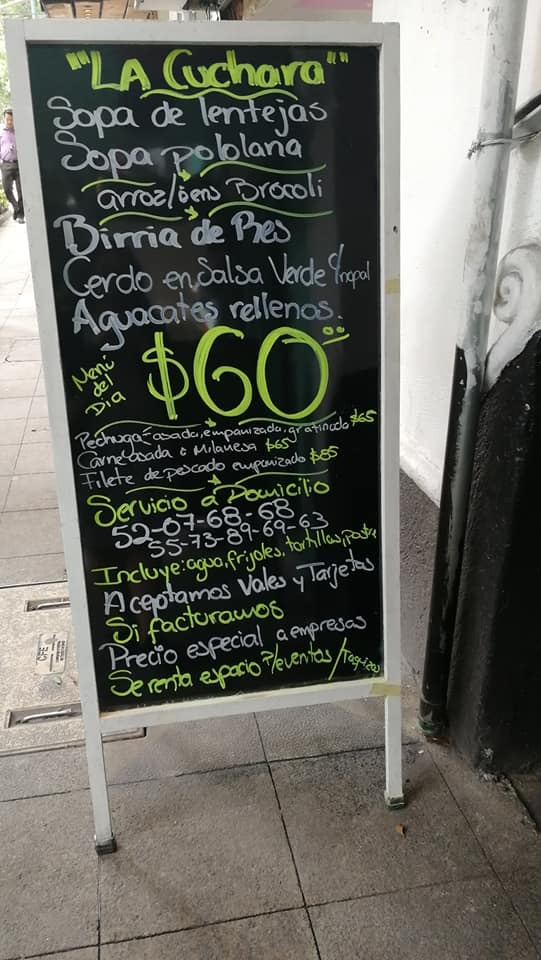 "LA Cuchara"
Sopa de lentejas
Sopa pololana
arroz/bens Brocoli
Birria de Res
Cerdo en Salsa Verde c/nopal
Aguacates rellenos.
Menú del Dia $60.00
Pechuga asada, empanizada, gratinada $65
Carne asada o Milanesa $65
Filete de pescado empanizado $85
Servicio a Domicilio
52-07-68-68
55-73-89-69-63
Incluye: agua, frijoles, tortillas, postre
Aceptamos Vales y Tarjetas
Si facturamos
Precio especial a empresas
Se renta espacio P/eventos/Taquizas
CFE